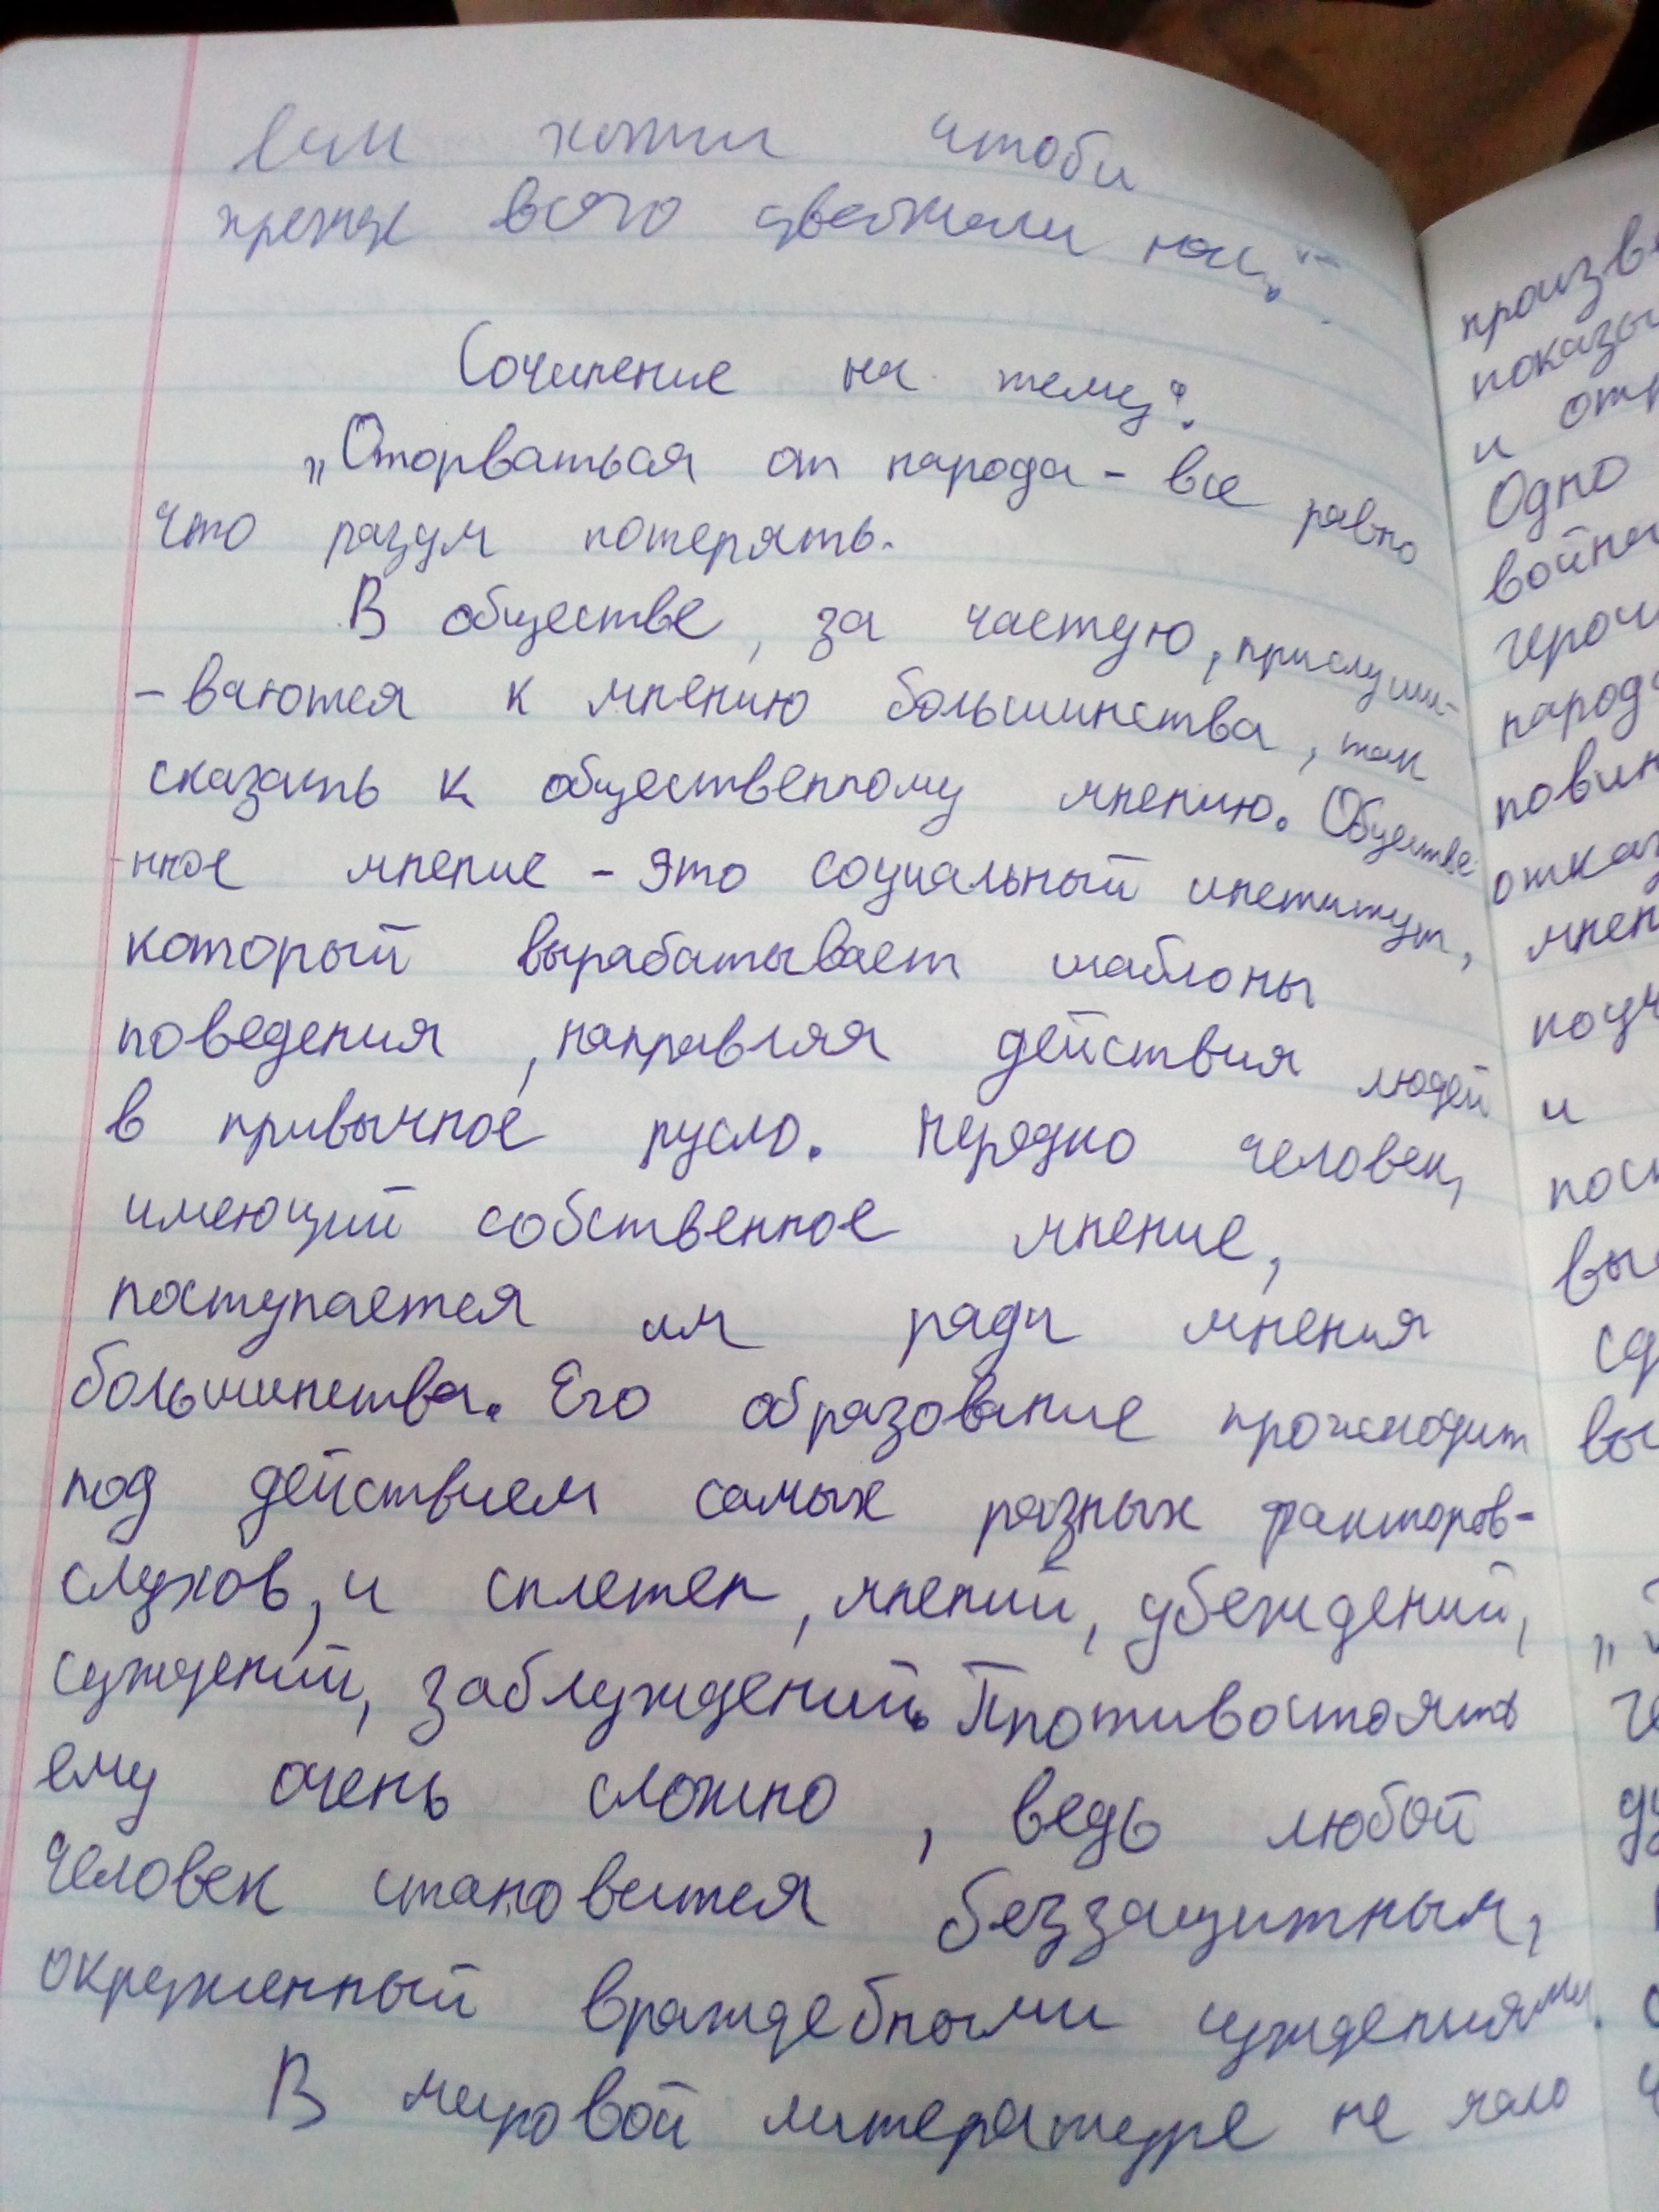 чтоби
всего уважали нас."
Сочинение на тему:
„Оторваться от народа - все равно
что разум потерять.
В обществе, за частую, прислуши-
- ваются к мнению большинства, так
сказать к общественному мнению. Обществе
-нное мнение - это социальный институт,
который вырабатывает шаблоны
поведения, направляя действия людей
в привычное русло. Нередко человек,
имеющий собственное мнение,
поступается им ради мнения
большинства. Его образование происходит
под действием самых разных факторов-
слухов, и сплетен, мнений, убеждений,
суждений, заблуждений. Противостоять
ему очень сложно, ведь любой
человек становится беззащитным,
окруженный враждебными суждениями.
В мировой литературе не мало
произве
показы
и отр
Одно
войны
герои
народ
повин
отказ
мнен
науч
и
посл
вы
сд
вы